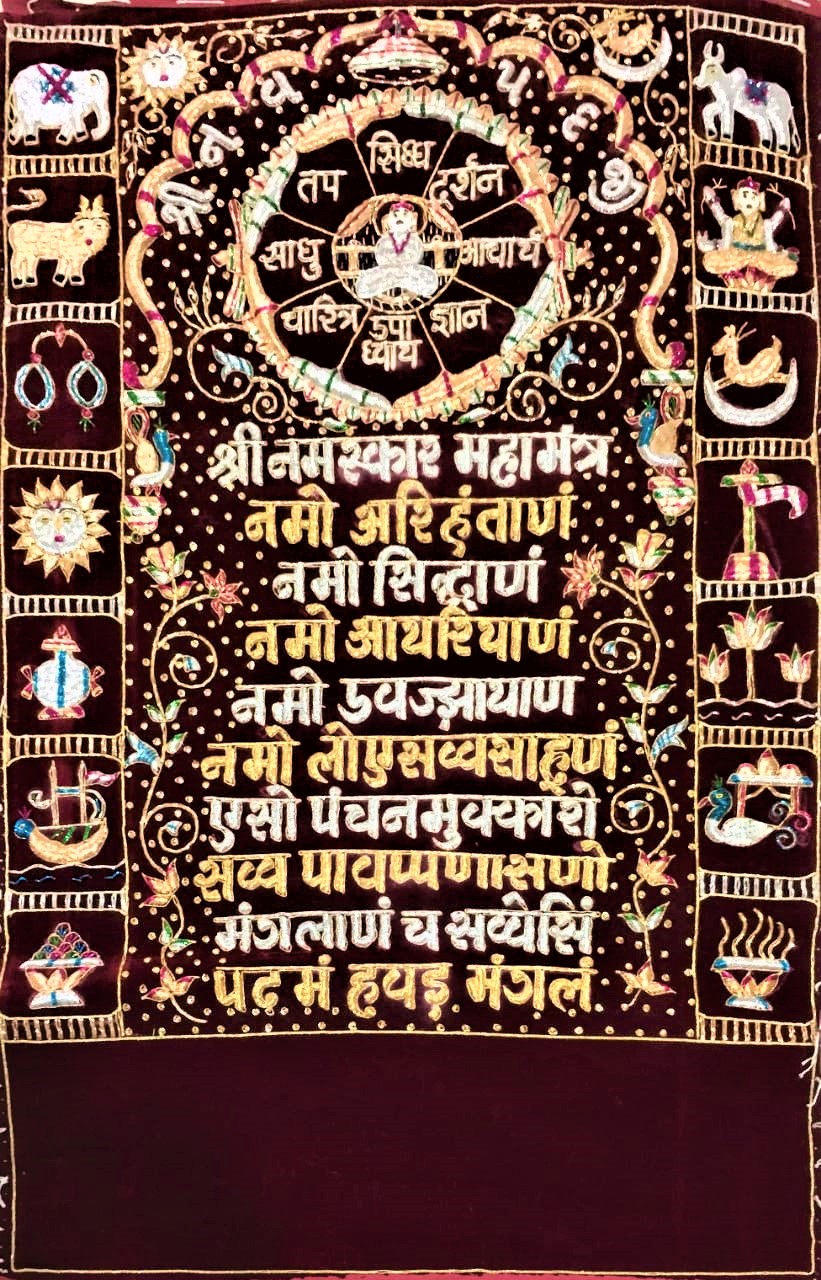 श्री न व प द
सिध्ध
दर्शन
आचार्य
ज्ञान
उपा
ध्याय
चारित्र
साधु
तप
श्री नमस्कार महामंत्र
नमो अरिहंताणं
नमो सिद्धाणं
नमो आयरियाणं
नमो उवज्झायाण
नमो लोएसव्वसाहूणं
एसो पंचनमुक्कारो
सव्व पावप्पणासणो
मंगलाणं च सव्वेसिं
पढमं हवइ मंगलं